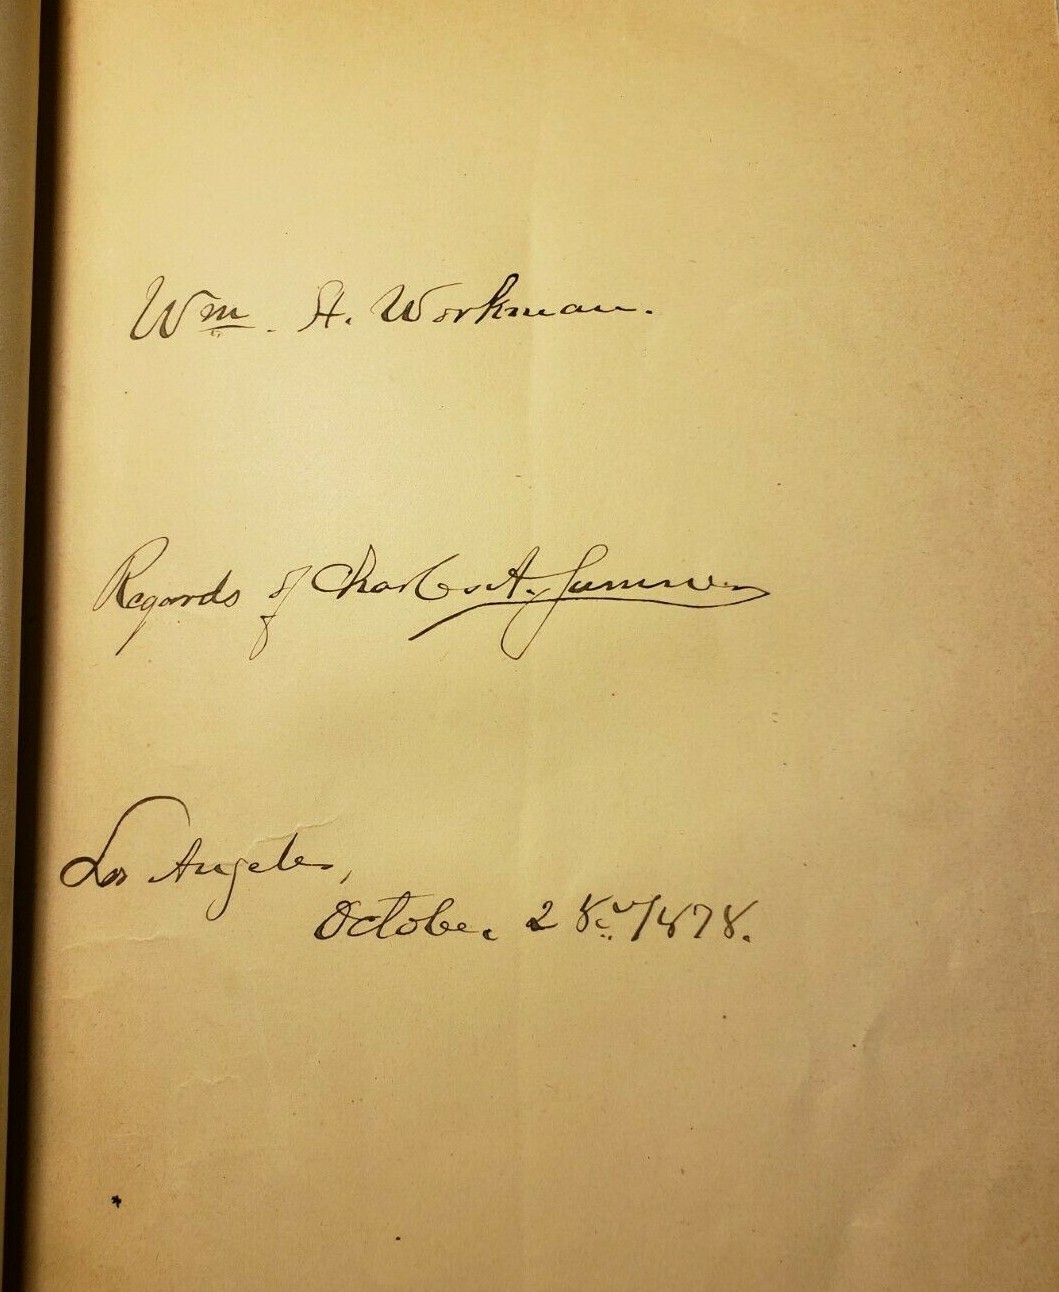 Wm. H. Workman.
Regards of Charles A. Sumner
Los Angeles,
October 28th, 1878.